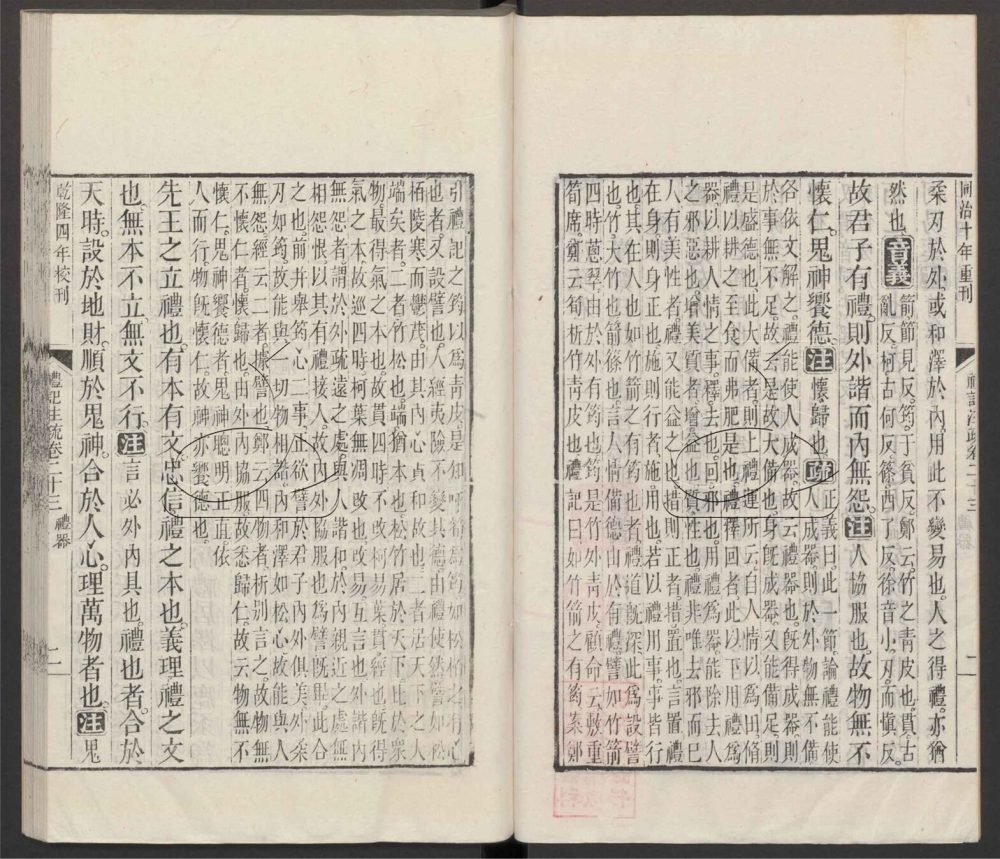 同治十年重刊 禮記注疏卷二十三
柔刃於外或和澤於內用此不變易也人之得禮亦猶
然也。音義箭節見反。筠于貧反。鄭云竹之青皮也。貫古
亂反。柯古何反。篠西了反。徐音小。刃而愼反。
故君子有禮。則外諧而內無怨。注人協服也。故物無不
懷仁。鬼神饗德。注懷歸也。疏正義曰此一節論禮能使
人成器則於外物無不備
各依文解之。禮能使人成器。故云禮器也。旣得成器則
於事無不足。故云是故大備也。身旣成器。又能備足則
是盛德也。此大備者則上禮運所云自人情以爲田脩
禮以耕之至食而弗肥是也。禮釋回者此以下用禮爲
器。以耕人情之事。釋去也。回邪也。用禮爲器。能除去人
之邪惡也。增美質者增益也。質性也。禮非唯去邪而已
人有美性者禮又能益之也。措則正者措置也。言置禮
在身則身正也。施則行者施用也。若以禮用事。事皆行
也。其在人也如竹箭之有筠者禮道旣深此爲設譬
也。竹大竹也。箭篠也。言人情備德由於有禮。譬如竹箭
四時蔥翠由於外有筠也。筠是竹外青皮。顧命云敷重
筍席。鄭云筍析竹青皮也。禮記曰如竹箭之有筠。案鄭
引禮記之筠以爲青皮。是知呼筠爲筍。如松柏之有心
也者。又設譬也。人經夷險不變其德。由禮使然。譬如松
柏陵寒而鬱茂。由其內心貞和故也。二者居天下之大
端矣者。二者竹松也。端猶本也。松竹居於天下比於衆
物最得氣之本也。故貫四時而不改柯易葉。貫經也。旣得
氣之本故巡四時柯葉無凋改也。改易互言也。外諧內
無怨者。謂於外疏遠之處。與人諧和。於內親近之處。無
相怨恨。以其有禮接人。故內外協服也。爲譬旣畢。此合
之也。前并舉筠心二事。正欲譬於君子內外俱美。外柔
刃如筠。故能與一切物相諧。內和澤如松心。故能與人
無怨。經云二者。據譬也。鄭云四物者。析別言之。故物無
不懷仁者。懷歸也。由外內協服。故悉歸仁。故云物無不
懷仁。鬼神饗德者。鬼神聰明正直依
人而行。物旣懷仁。故神亦饗德也。
先王之立禮也。有本有文。忠信禮之本也。義理禮之文
也。無本不立。無文不行。注言必外內具也。禮也者。合於
天時。設於地財。順於鬼神。合於人心。理萬物者也。注鬼
乾隆四年校刊 禮記注疏卷二十三 禮器 二